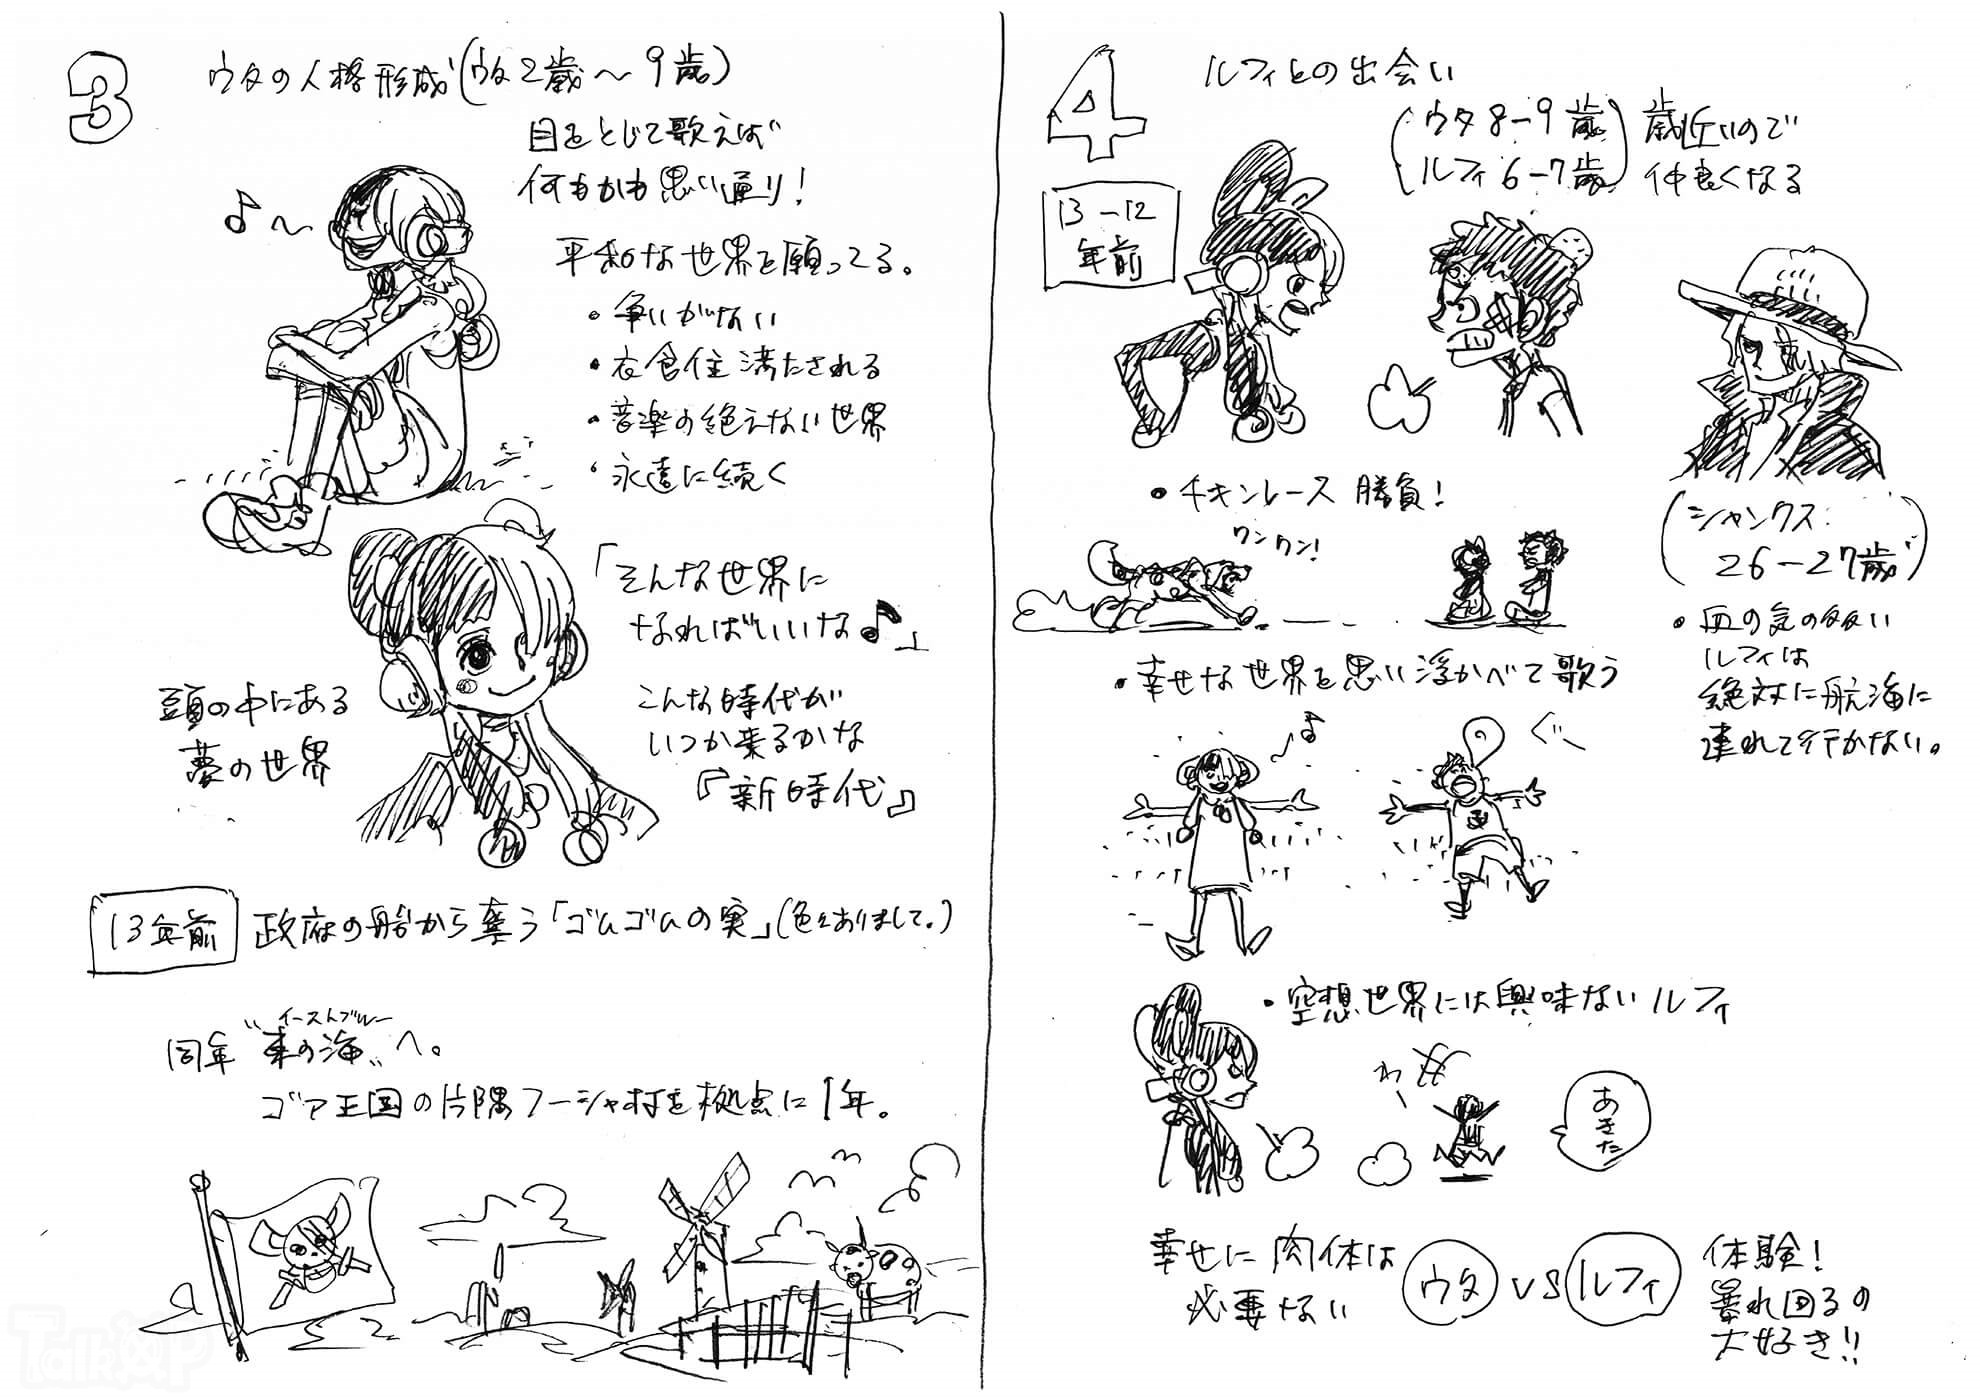 3
ウタの人格形成(ウタ2歳〜9歳)
目をとじて歌えば
何もかも思い通り!
♪〜
平和な世界を願ってる。
・争いがない
・衣食住満たされる
・音楽の絶えない世界
・永遠に続く
「そんな世界に
なればいいな♪」
頭の中にある
夢の世界
こんな時代が
いつか来るかな
『新時代』
13年前
政府の船から奪う「ゴムゴムの実」(色々ありまして。)
イーストブルー
同年"東の海"へ。
ゴア王国の片隅フーシャ村を拠点に1年。
4
ルフィとの出会い
(ウタ8-9歳
ルフィ6-7歳)
歳近いので
仲良くなる
13-12
年前
・チキンレース 勝負!
ワンワン!
(シャンクス:
26-27歳)
・血の気の多い
ルフィは
絶対に航海に
連れて行かない。
・幸せな世界を思い浮かべて歌う
♪
ぐ〜
・空想世界には興味ないルフィ
わー
あきた
幸せに肉体は
必要ない
ウタ VS ルフィ
体験!
暴れ回るの
大好き!!
TalkUP